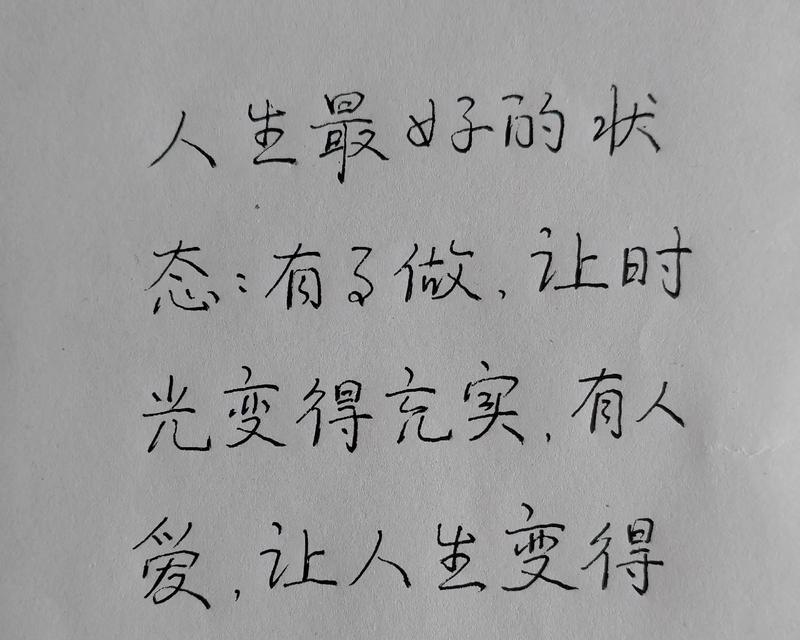 人生最好的状
态:有事做,让时
光变得充实,有人
爱,让人生变得